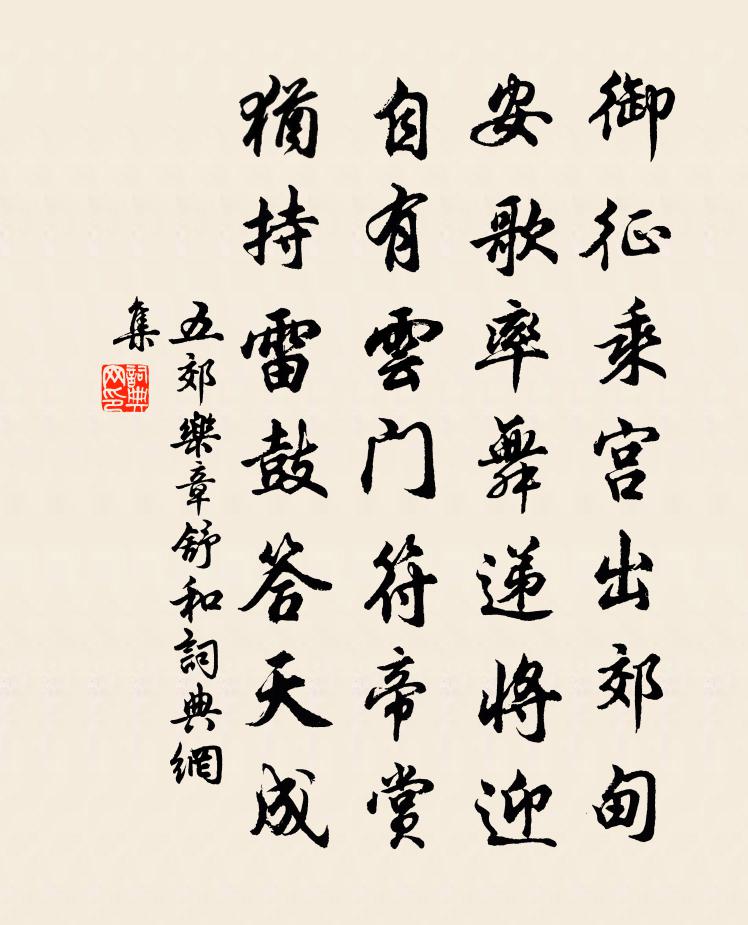 御征乘宫出郊甸
安歌率舞递将迎
自有雲门符帝赏
猶持雷鼓答天成
五郊樂章舒和詞典網
集
詞典
网印